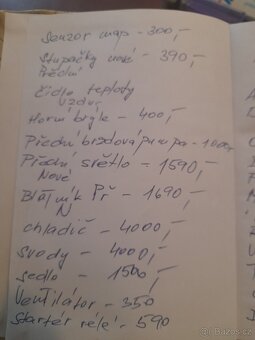 Senzor map - 300,-
Stupačky nové - 390,-
Přední
Čidlo teploty
vzduch
Horní brýle - 400,-
Přední brzdová pumpa - 1000
Přední světlo - 1590,-
Nové
Blatník Př - 1690,-
N
chladič - 4000,-
svody - 4000,-
sedlo - 1500,-
Ventilátor - 350
Startér relé - 590